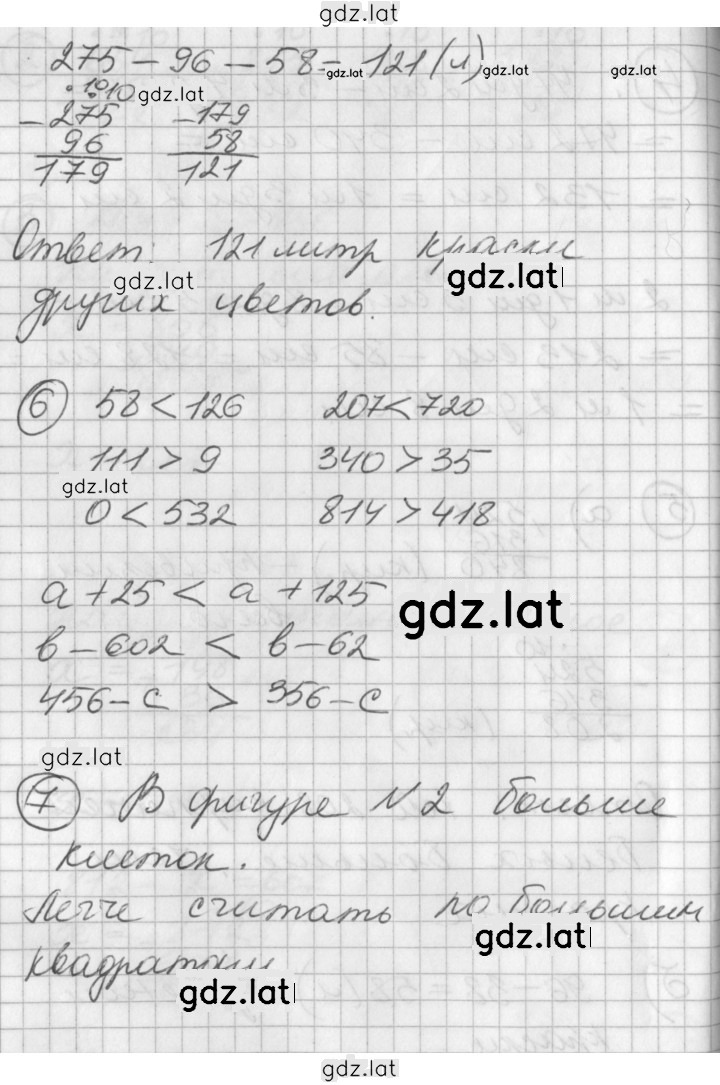 gdz.lat
275 - 96 - 58 = 121 (л)
gdz.lat gdz.lat gdz.lat
10 10 gdz.lat
- 275 - 179
96 58
179 121
Ответ: 121 литр краски
gdz.lat gdz.lat
других цветов.
6 58 < 126 207 < 720
111 > 9 340 > 35
gdz.lat
0 < 532 814 > 418
a + 25 < a + 125
gdz.lat
в - 602 < в - 62
456 - c > 356 - c
gdz.lat
7 В фигуре №2 больше
клеток.
Легче считать по большим
gdz.lat
квадратам
gdz.lat
gdz.lat